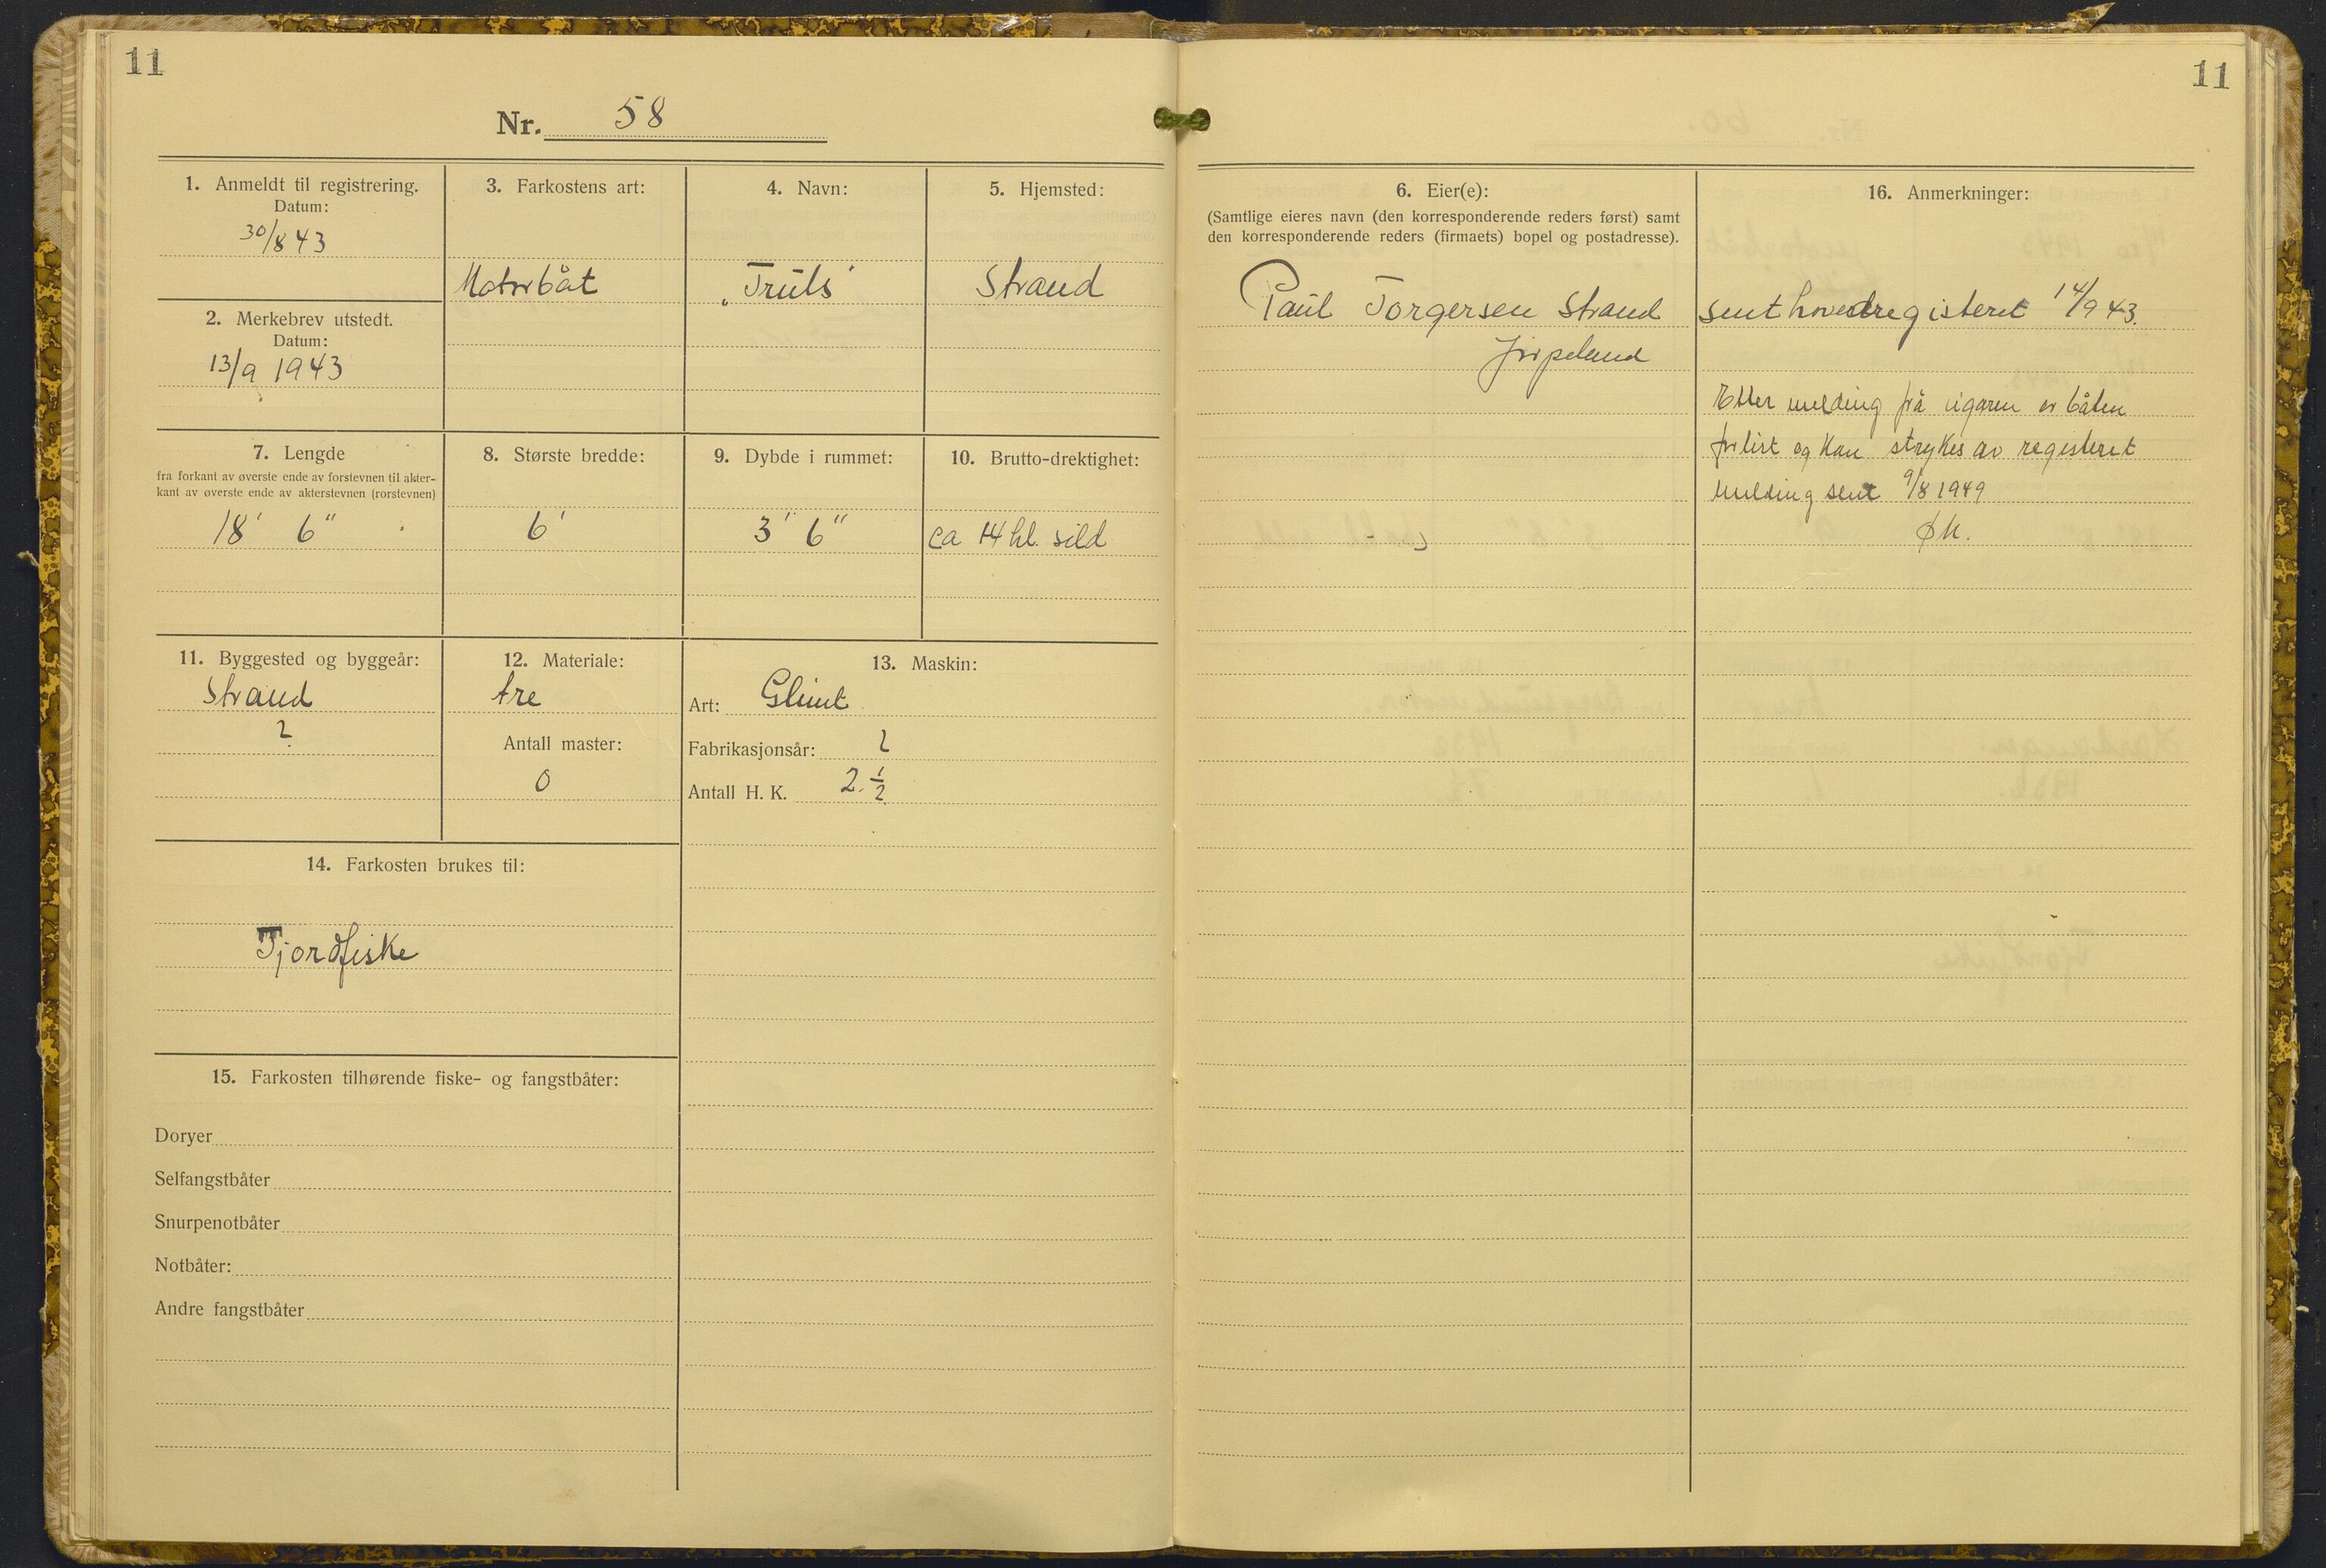 11
Nr. 58
1. Anmeldt til registrering.
Datum:
30/8 43
2. Merkebrev utstedt.
Datum:
13/9 1943
3. Farkostens art:
Motorbåt
4. Navn:
„Truls"
5. Hjemsted:
Strand
7. Lengde
fra forkant av øverste ende av forstevnen til akter-
kant av øverste ende av akterstevnen (rorstevnen)
18' 6"
8. Største bredde:
6'
9. Dybde i rummet:
3' 6"
10. Brutto-drektighet:
ca 14 hl. sild
11. Byggested og byggeår:
Strand
?
12. Materiale:
tre
Antall master:
0
13. Maskin:
Art: Glimt
Fabrikasjonsår: ?
Antall H. K. 2 1/2
14. Farkosten brukes til:
Fjordfiske
15. Farkosten tilhørende fiske- og fangstbåter:
Doryer
Selfangstbåter
Snurpenotbåter
Notbåter:
Andre fangstbåter
11
6. Eier(e):
(Samtlige eieres navn (den korresponderende reders først) samt
den korresponderende reders (firmaets) bopel og postadresse).
Paul Torgersen Strand
Jørpeland
16. Anmerkninger:
sent hovedregisteret 14/9 43.
Etter melding frå eigaren er båten
forlist og kan strykes av registeret
Melding sent 9/8 1949
ØM.